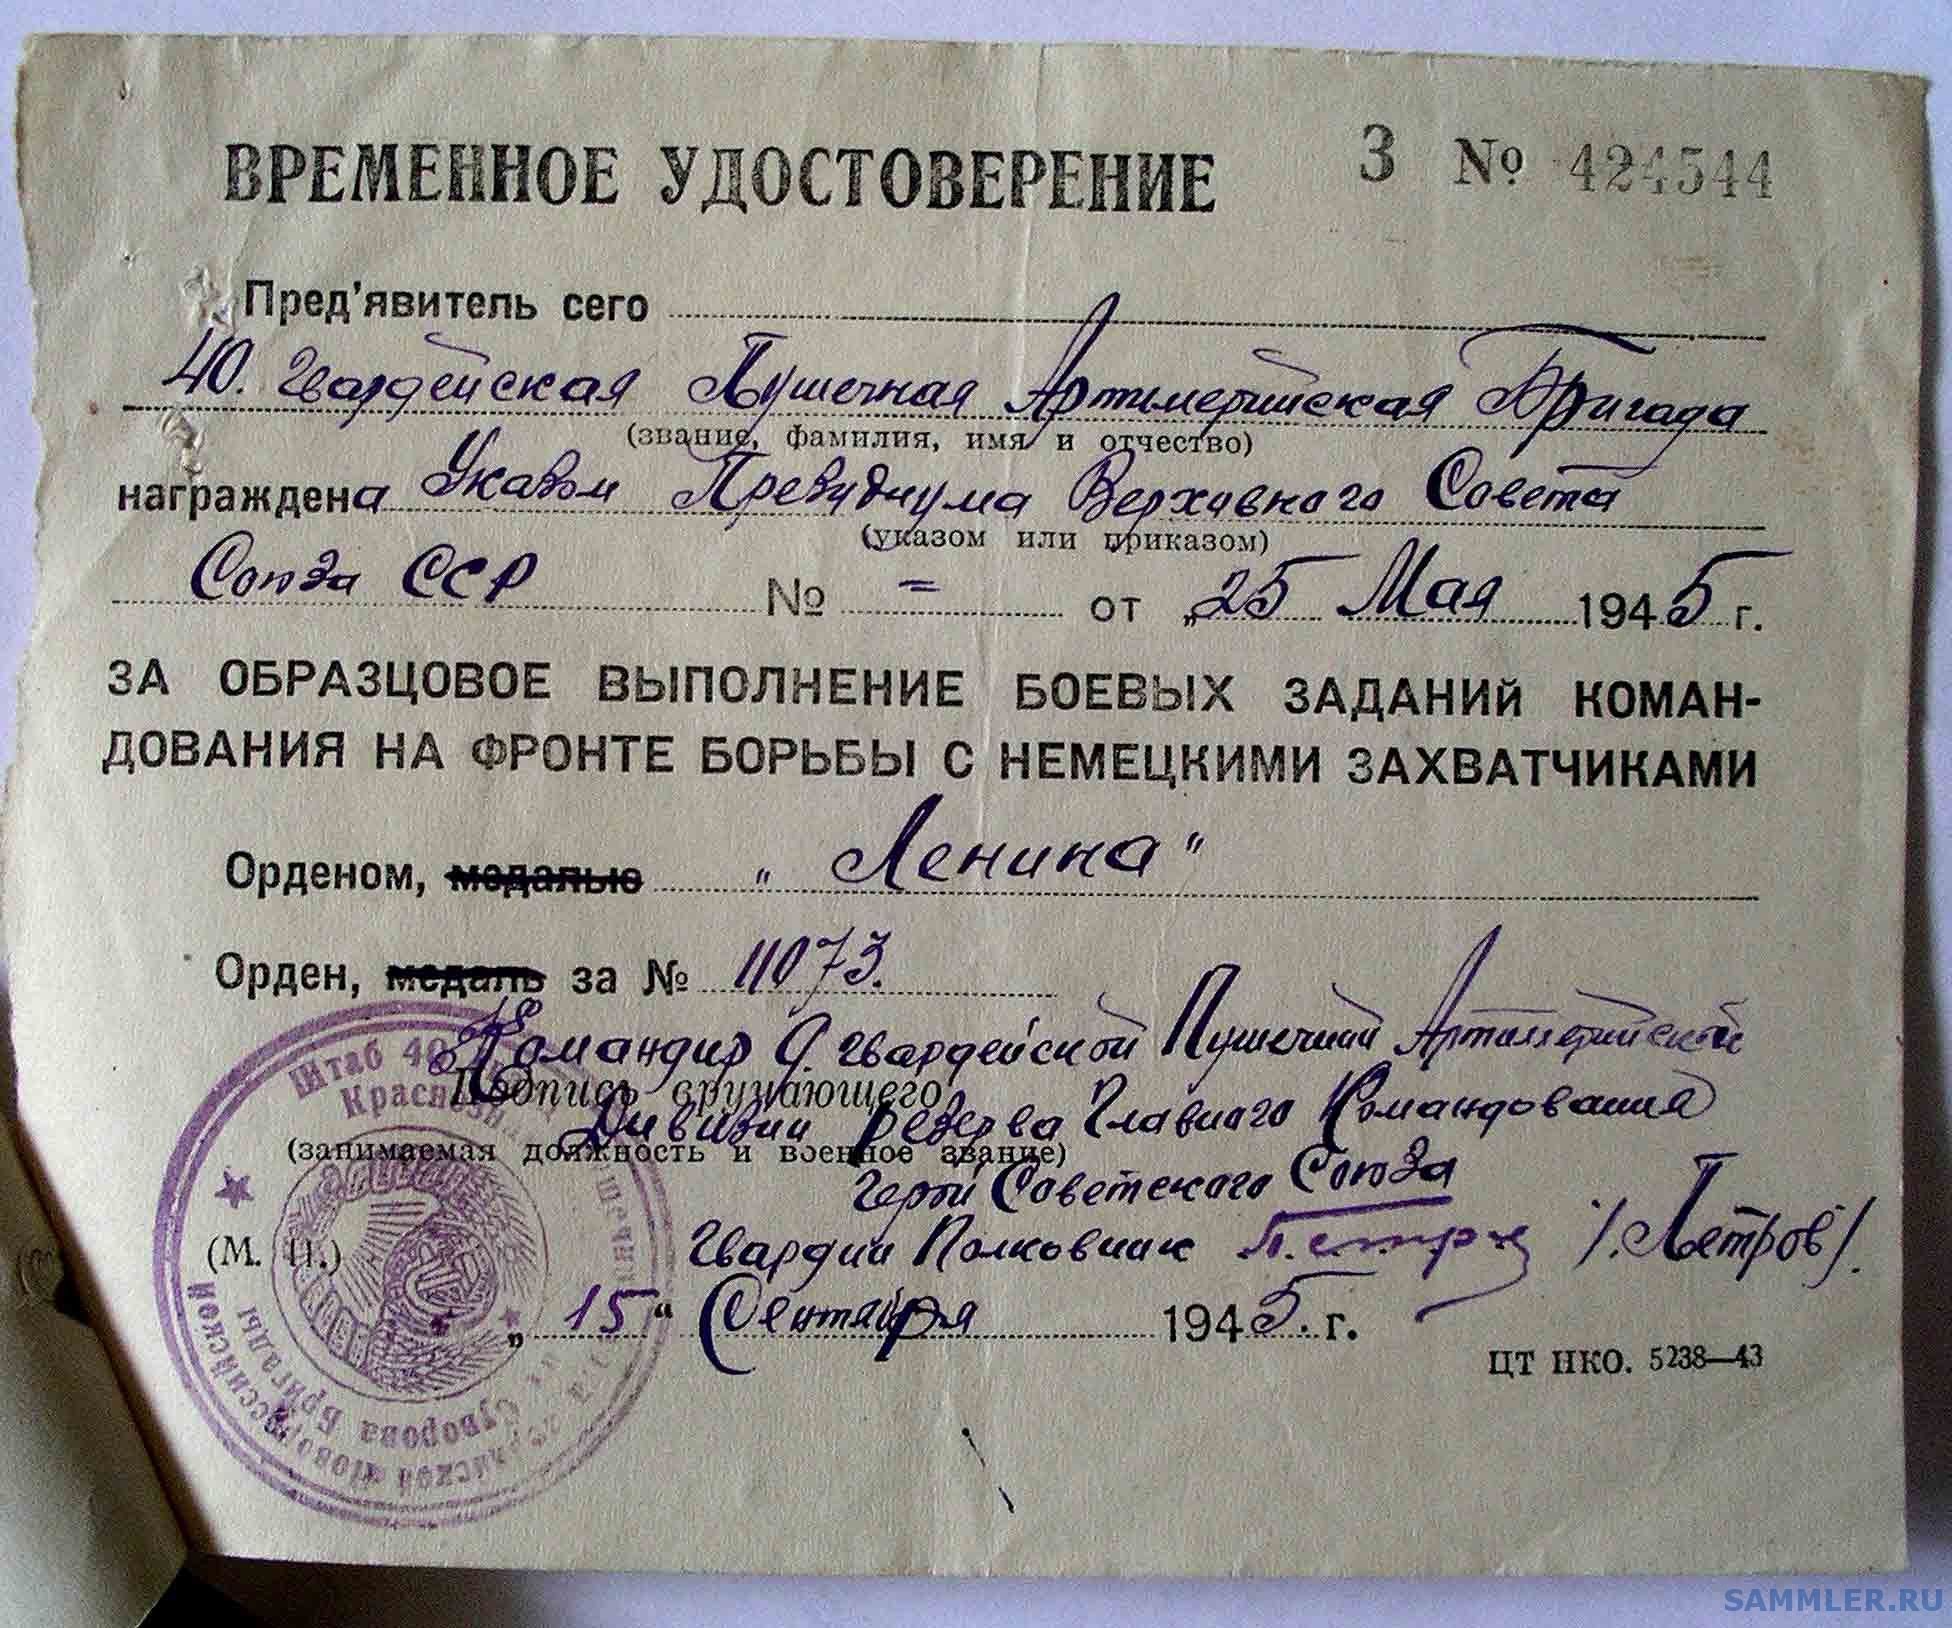 ВРЕМЕННОЕ УДОСТОВЕРЕНИЕ З № 424544
Пред'явитель сего
40. Гвардейская Пушечная Артиллерийская Бригада
(звание, фамилия, имя и отчество)
награждена Указом Президиума Верховного Совета
(указом или приказом)
Союза ССР № = от „25 Мая 1945 г.
ЗА ОБРАЗЦОВОЕ ВЫПОЛНЕНИЕ БОЕВЫХ ЗАДАНИЙ КОМАН-
ДОВАНИЯ НА ФРОНТЕ БОРЬБЫ С НЕМЕЦКИМИ ЗАХВАТЧИКАМИ
Орденом, медалью „ Ленина "
Орден, медаль за № 11073.
Командир 9. Гвардейской Пушечной Артиллерийской
Подпись вручающего
Дивизии резерва Главного Командования
(занимаемая должность и военное звание)
Герой Советского Союза
Гвардии Полковник /.Петров/.
(М. П.)
„ 15 “ Сентября 1945. г.
ЦТ НКО. 5238—43
Штаб 40
Новороссийской
Суворова Бригады
SAMMLER.RU